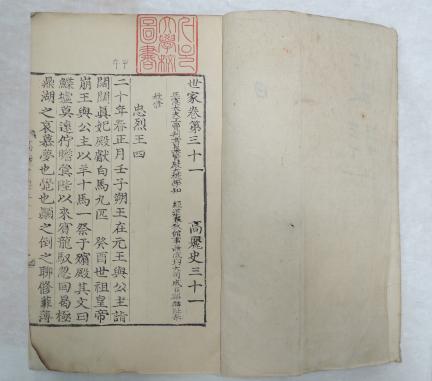 서울
大學校
圖書
世家卷第三十一 高麗史三十一
正憲大夫工曹判書集賢殿大提學知 經筵春秋館事兼成均大司成臣鄭麟趾奉
教修
忠烈王四
二十年春正月壬子朔王在元王與公主詣
闊闊眞妃殿獻白馬九匹 癸酉世祖皇帝
崩王與公主以羊十馬一祭于殯殿其文曰
鰈墟莫遠佇瞻蓂陛以來賓龍馭忽回曷極
鼎湖之哀慕夢也覺也顚之倒之聊修菲薄